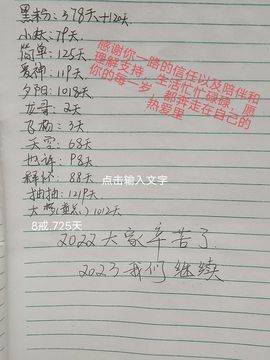 黑粉: 378天+120天.
小赵: 79天
简单: 125天
爱神: 119天
夕阳: 1018天
龙哥: 2天
飞扬: 3天
天空: 68天
也许: 98天
释怀: 88天
抽抽: 1219天.
大梦 1012天
8戒.725天
2022大家辛苦了
2023我们继续
感谢你一路的信任以及陪伴和
理解支持，生活忙忙碌碌，愿
你的每一岁，都奔走在自己的
热爱里
点击输入文字